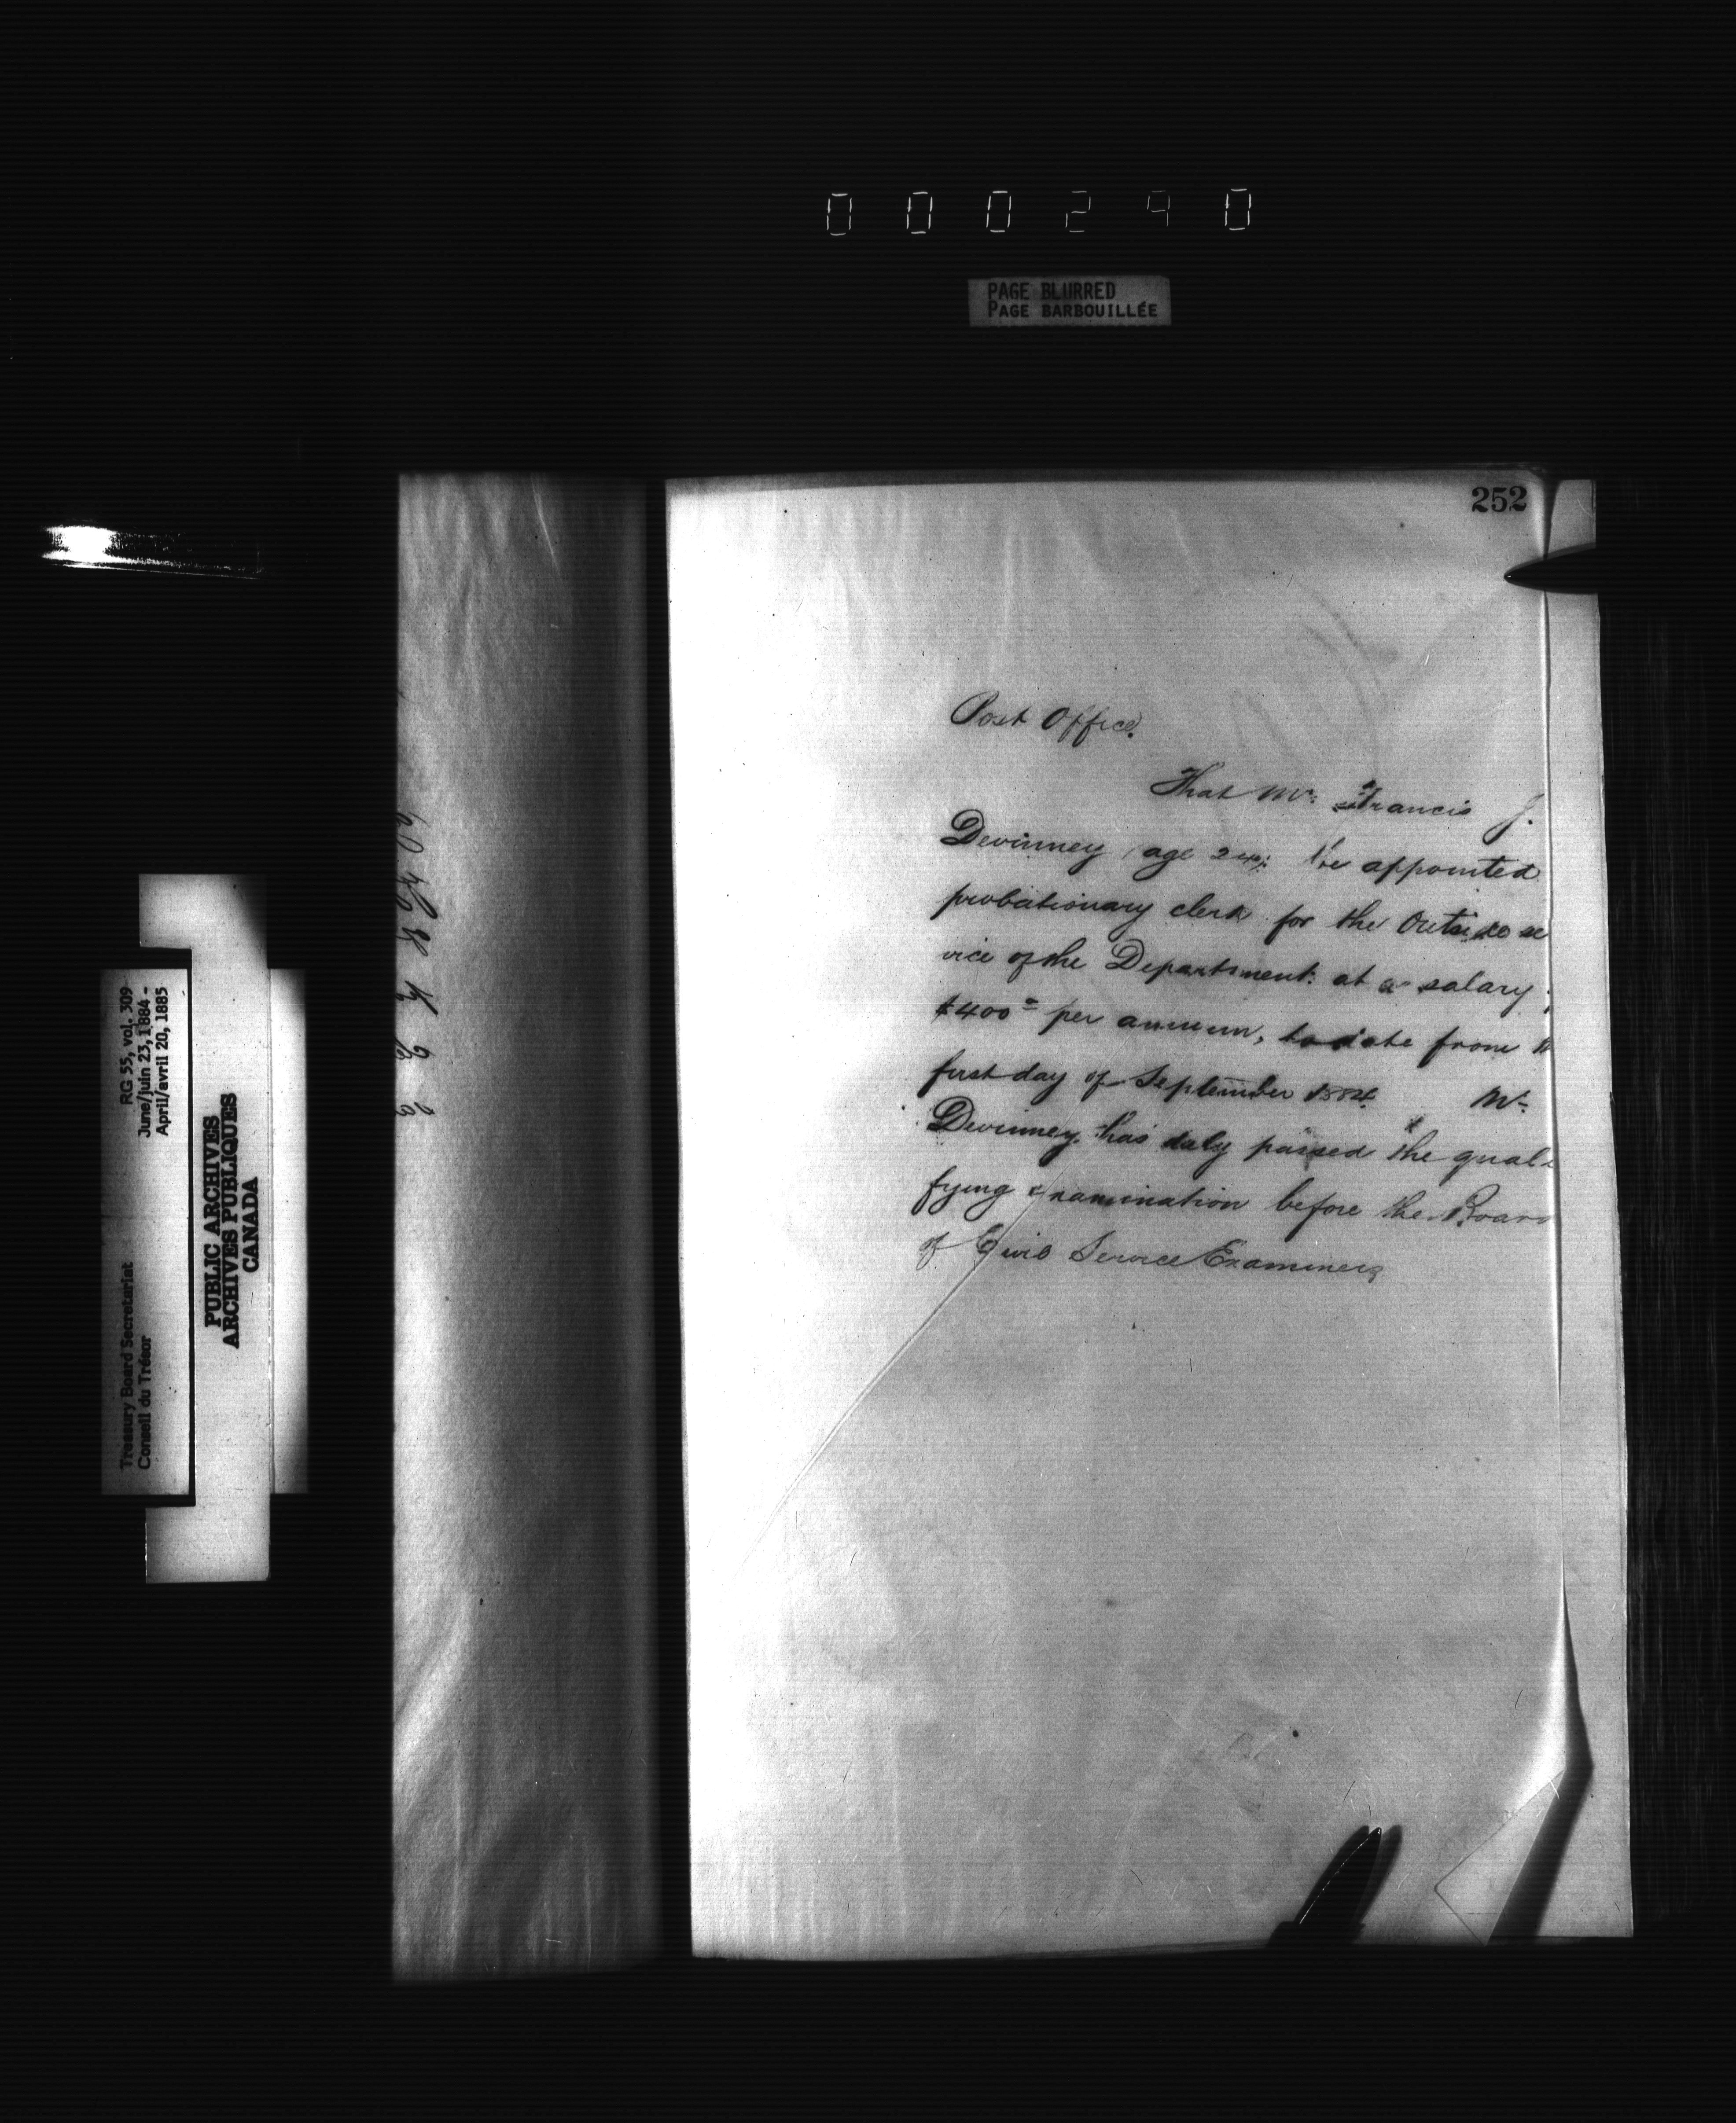 000290
PAGE BLURRED
PAGE BARBOUILLÉE
252
Post Office.
That Mr. Francis J.
Devinney (age 24) be appointed
probationary clerk for the Outside se
vice of the Department at a salary
$400 = per annum, to date from
first day of September 1884. Mr.
Devinney has duly passed the quali
fying examination before the Board
of Civil Service Examiners
RG 55, vol. 309
June/juin 23, 1884 -
April/avril 20, 1885
Treasury Board Secretariat
Conseil du Trésor
PUBLIC ARCHIVES
ARCHIVES PUBLIQUES
CANADA